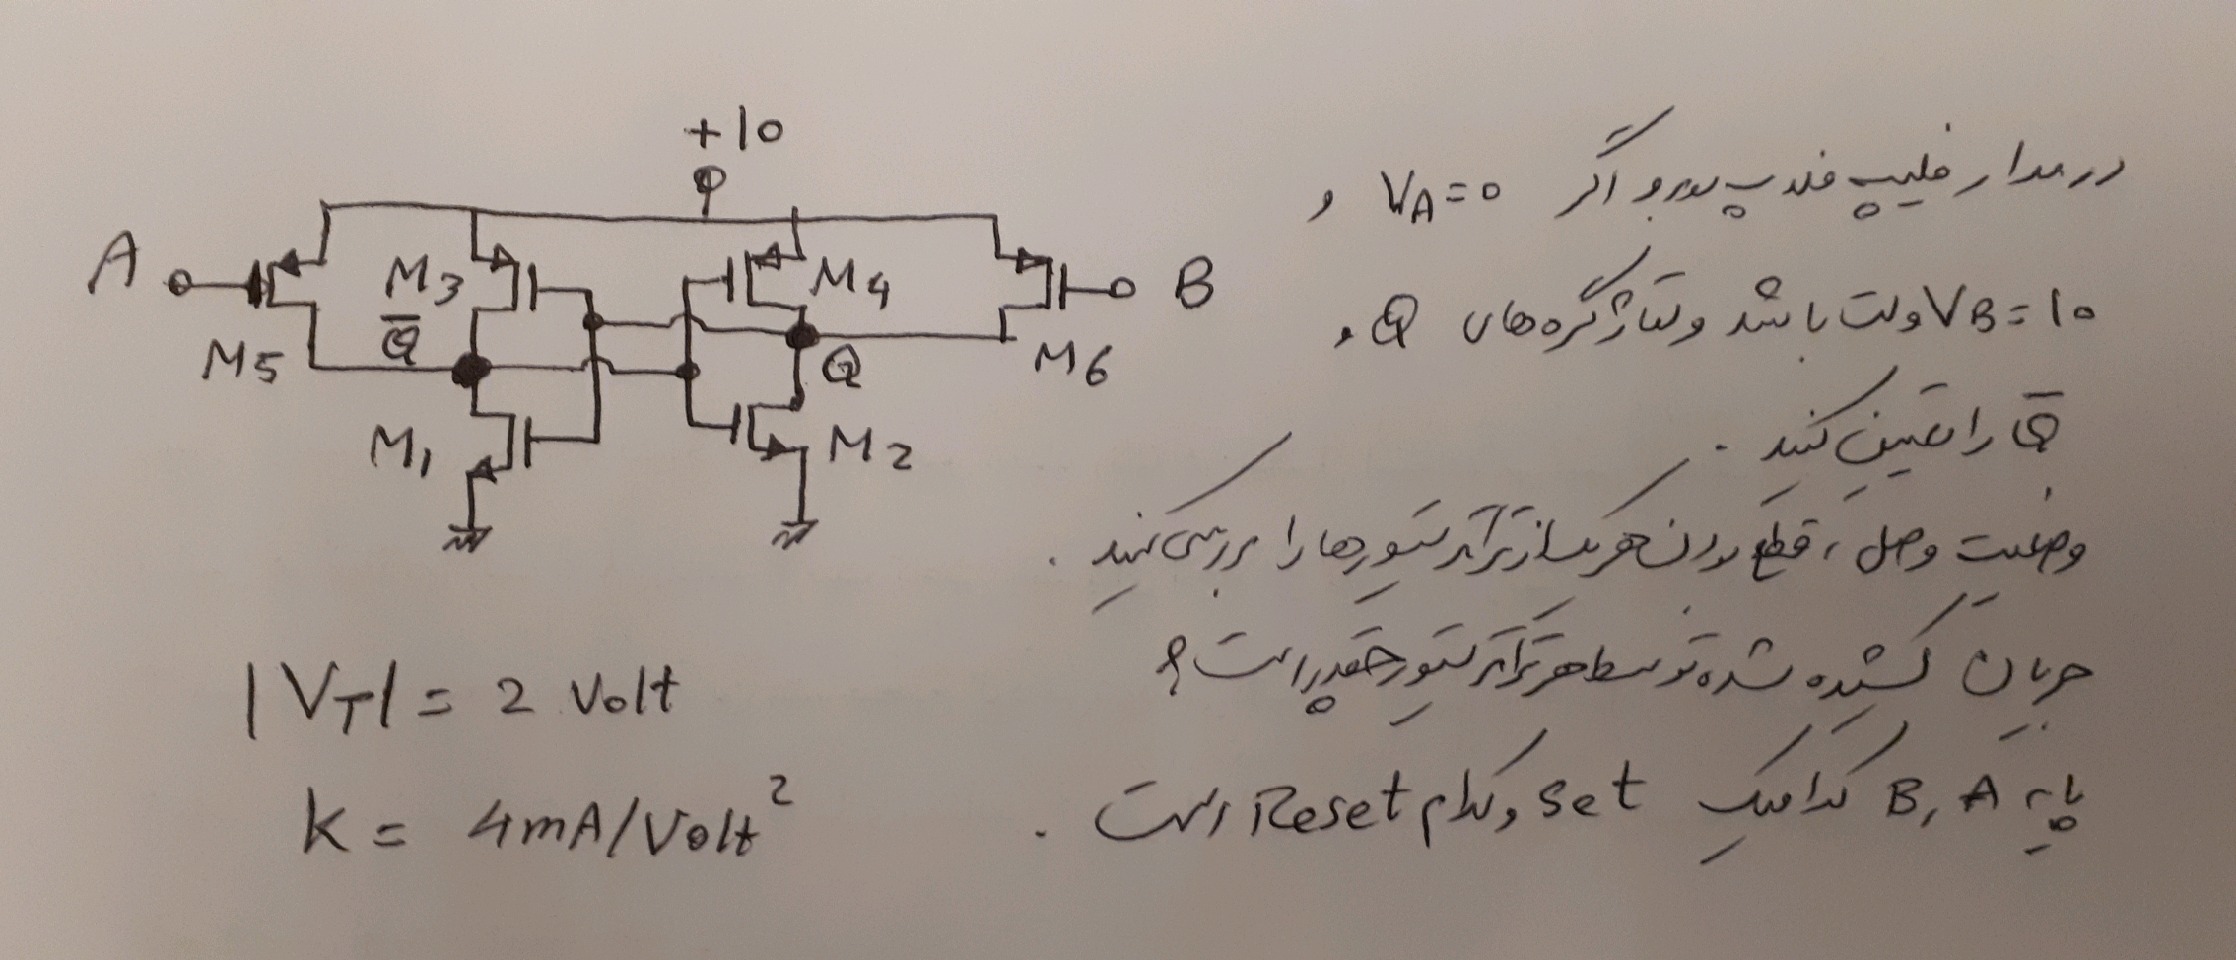 +10
A
M3
M4
B
Q̅
M5
Q
M6
M1
M2
|VT| = 2 Volt
K = 4mA/Volt²
در مدار فلیپ فلاپ روبرو اگر VA=0 و
VB=10 ولت باشد ولتاژ گره های Q و
Q̅ را تعیین کنید.
وضعیت وصل، قطع بودن هر یک از ترانزیستورها را بررسی کنید.
جریان کشیده شده توسط هر ترانزیستور چقدر است؟
پایه A, B کدامیک Set و کدام Reset است.